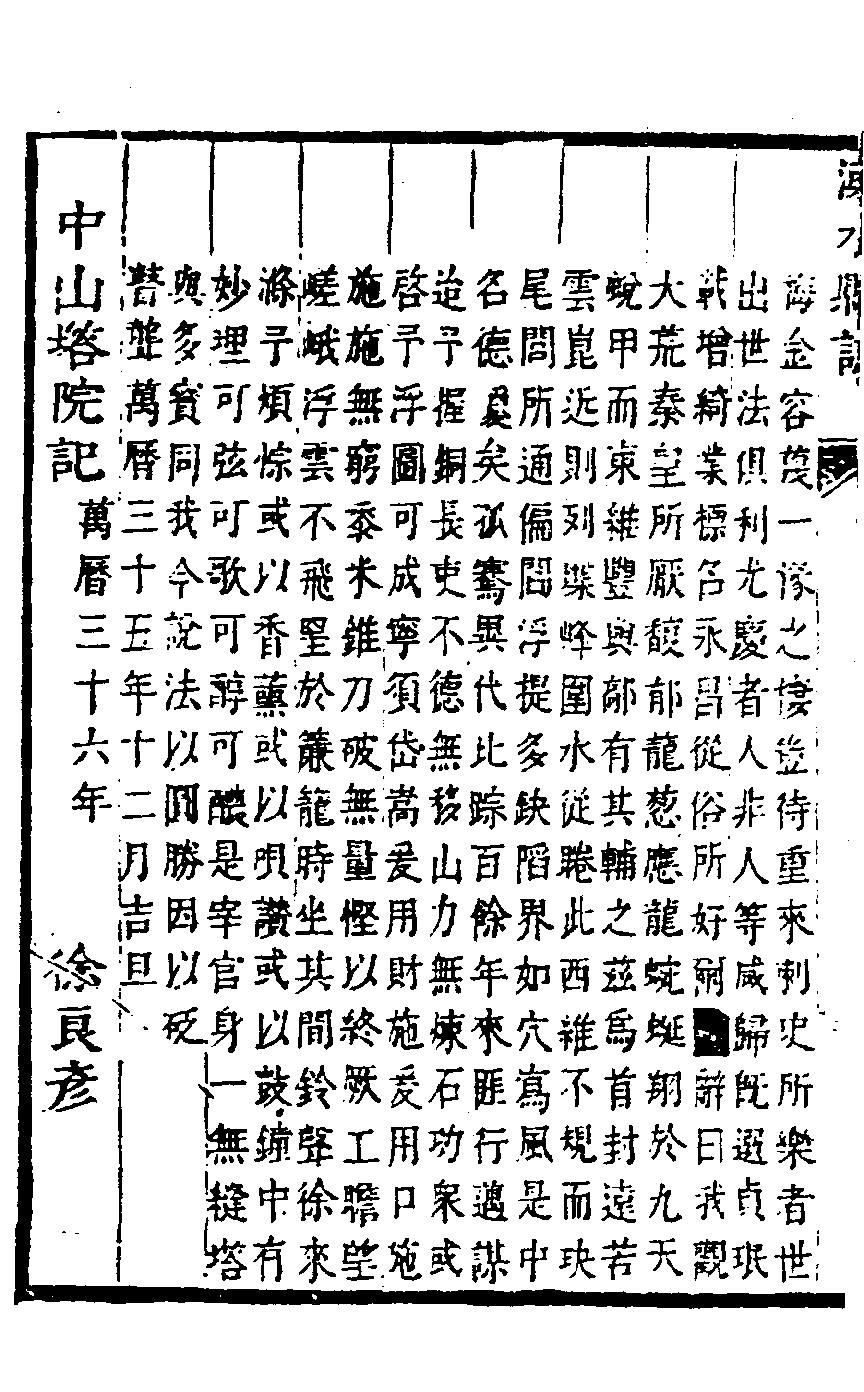 海金容蔑一㴽之悽豈待重來刺史所樂者世
出世法俱利尤慶者人非人等咸歸旣選貞珉
戰增綺業標名永昌從俗所好嗣辭曰我觀
大荒秦皇所厭馥郁龍葱應龍蜿蜒翔於九天
蛻甲而東維豐與部有其輔之茲爲首封遠若
雲崑近則列㯿峰圍水從睠此西維不規而玦
尾閭所通偏閻浮提多缺陷界如穴寫風是中
名德夐矣孤鶱異代比踪百餘年來匪行邁謀
迨予握銅長吏不德無移山力無煉石功衆或
啓予浮圖可成寧須岱嵩爰用財施爰用口施
施施無窮黍米錐刀破無量慳以終厥工瞻望
嵯峨浮雲不飛罣於簾籠時坐其間鈴聲徐來
滌予煩悰或以香薰或以唄讚或以鼓鐘中有
妙理可弦可歌可醇可醲是宰官身一無縫塔
與多寶同我今說法以圓勝因以砭
瞽聾萬曆三十五年十二月吉旦
中山塔院記 萬曆三十六年 徐良彥